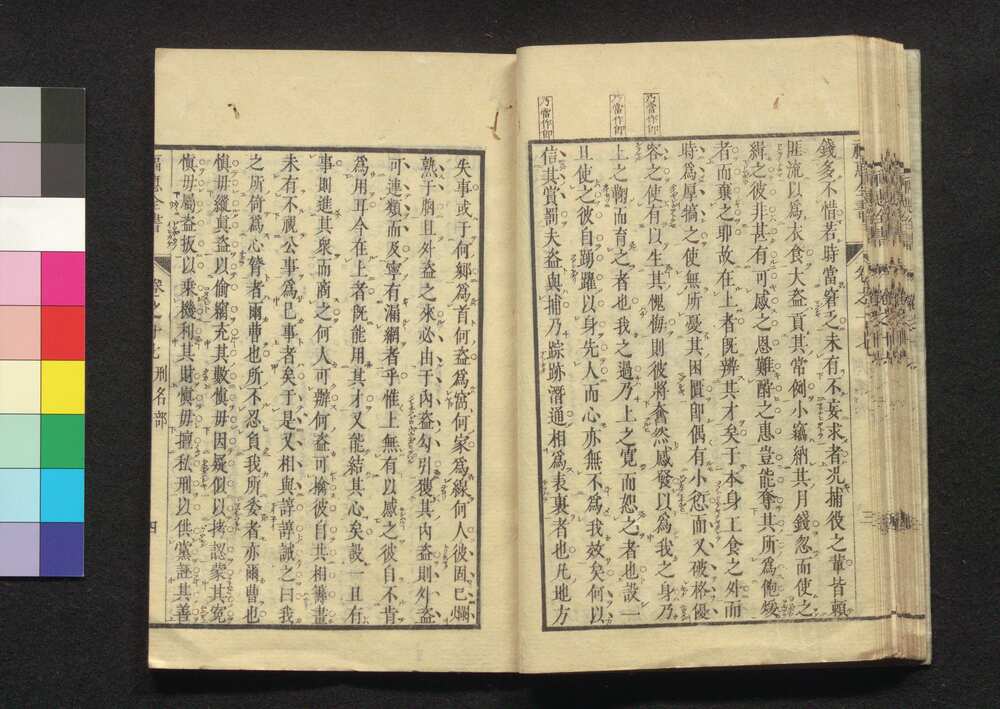 乃當作仰
乃當作仰
乃當作仰
錢多不惜若時當窘乏未有不妄求者况捕役之輩皆賴
匪流以爲衣食大盗貢其常例小竊納其月錢忽而使之
緝之彼非甚有可感之恩難酬之惠豈能奪其所爲飽煖
者而棄之耶故在上者旣辨其才矣于本身工食之外而
時爲厚犒之使無所憂其困匱即偶有小愆而又破格優
容之使有以生其愧悔則彼將奮然感發以爲我之身乃
上之鞠而育之者也我之過乃上之寛而恕之者也設一
旦使之彼自踴躍以身先人而心亦無不爲我效矣何以
信其賞罰夫盗與捕乃踪跡潛通相爲表裏者也凡地方
失事或于何鄉爲首何盗爲窩何家爲線何人彼固已爛
熟于胸且外盗之來必由于内盗勾引獲其内盗則外盗
可連類而及寧有漏網者乎惟上無有以感之彼自不肯
爲用耳今在上者旣能用其才又能結其心矣設一旦有
事則進其衆而商之何人可辦何盗可擒彼自共相籌畫
未有不視公事爲已事者矣于是又相與諄諄誡之曰我
之所倚爲心膂者爾曹也所不忍負我所委者亦爾曹也
愼毋縱眞盗以偷竊充其數愼毋因疑似以拷認蒙其寃
愼毋屬盗扳以乘機利其財愼毋擅私刑以供黨誣其善
福惠全書
卷之十七
刑名部
四